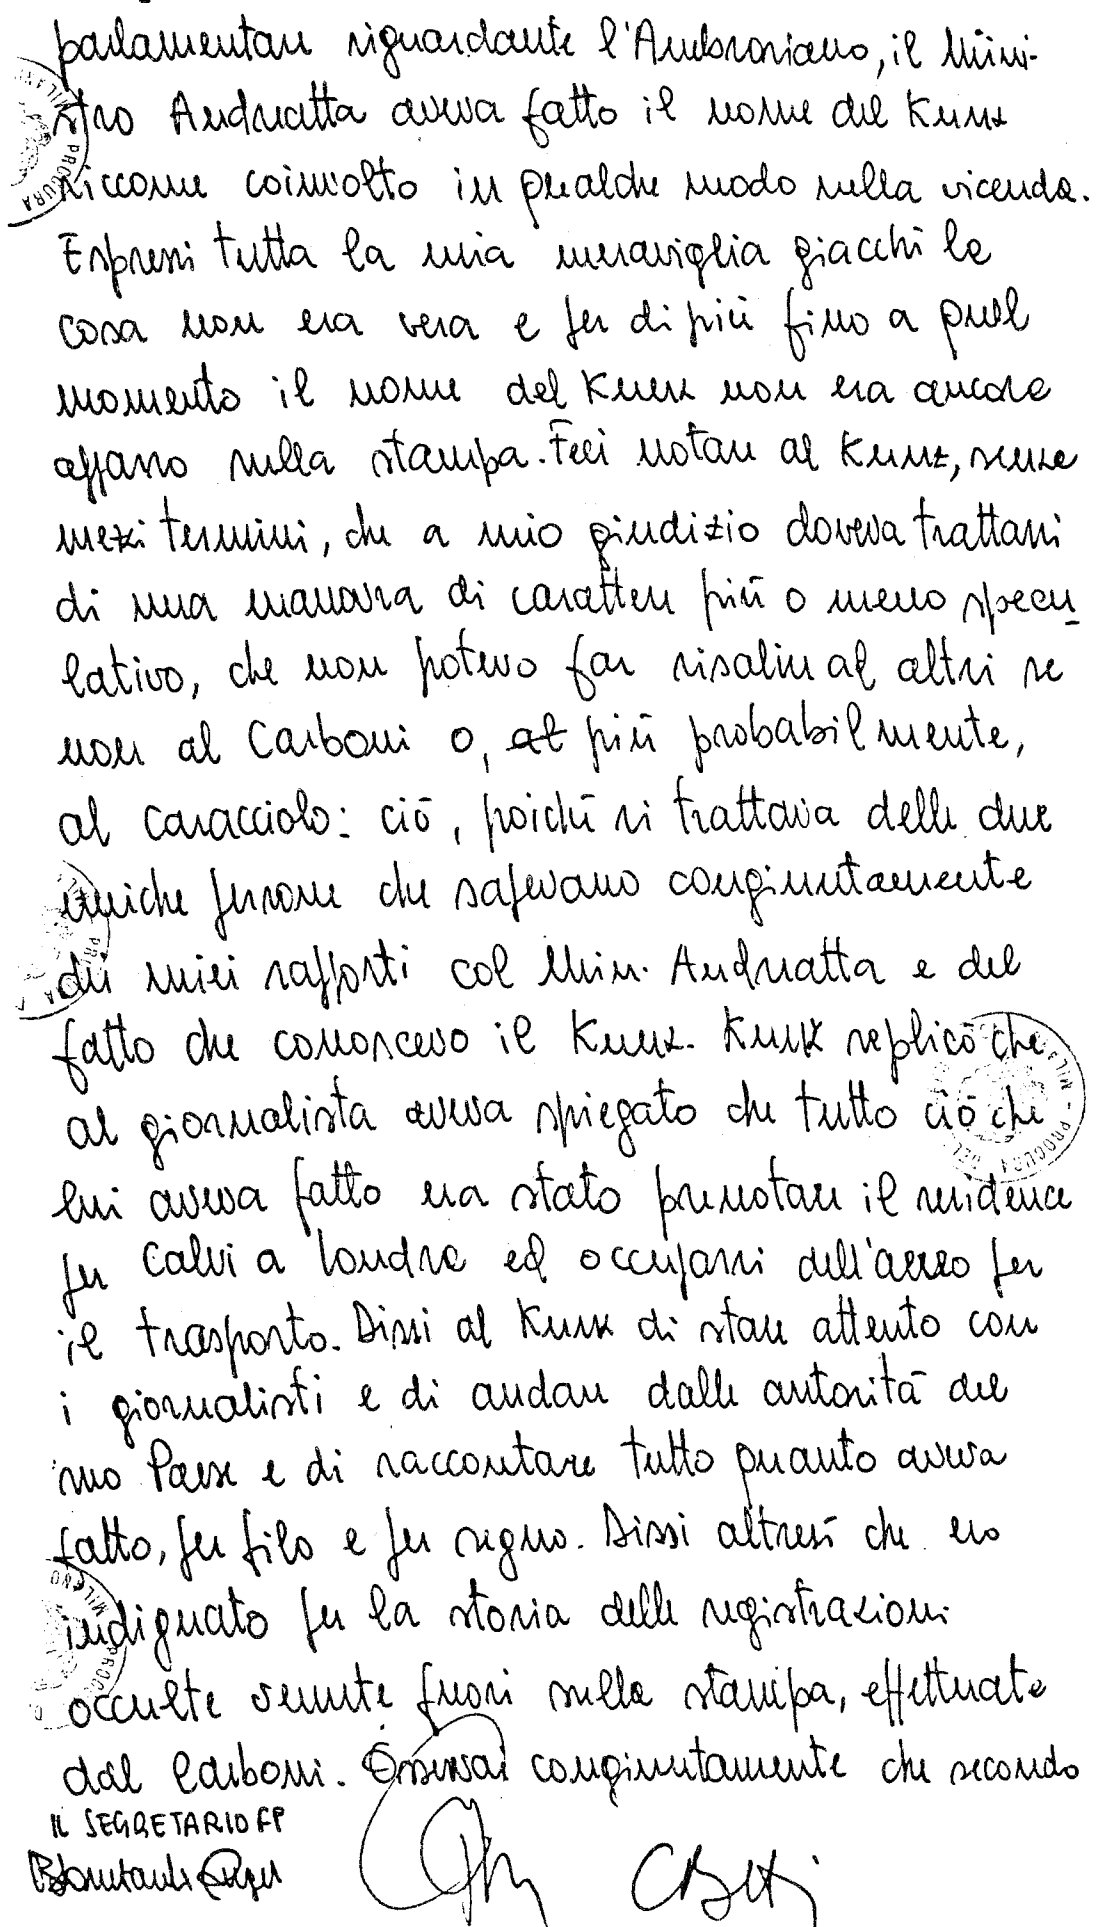 parlamentare riguardante l'Ambrosiano, il Mini-
stro Andreatta aveva fatto il nome del Kunz
siccome coinvolto in qualche modo nella vicenda.
Espressi tutta la mia meraviglia giacché la
cosa non era vera e per di più fino a quel
momento il nome del Kunz non era ancora
apparso sulla stampa. Feci notare al Kunz, senza
mezzi termini, che a mio giudizio doveva trattarsi
di una manovra di carattere più o meno specu-
lativo, che non potevo far risalire ad altri se
non al Carboni o, at più probabilmente,
al Caracciolo: ciò, poiché si trattava delle due
uniche persone che sapevano congiuntamente
dei miei rapporti col Min. Andreatta e del
fatto che conoscevo il Kunz. Kunz replicò che
al giornalista aveva spiegato che tutto ciò che
lui aveva fatto era stato prenotare il residence
per Calvi a Londra ed occuparsi dell'aereo per
il trasporto. Dissi al Kunz di stare attento con
i giornalisti e di andare dalle autorità del
suo Paese e di raccontare tutto quanto aveva
fatto, per filo e per segno. Dissi altresì che ero
indignato per la storia delle registrazioni
occulte venute fuori sulla stampa, effettuate
dal Carboni. Osservai congiuntamente che secondo
IL SEGRETARIO FP